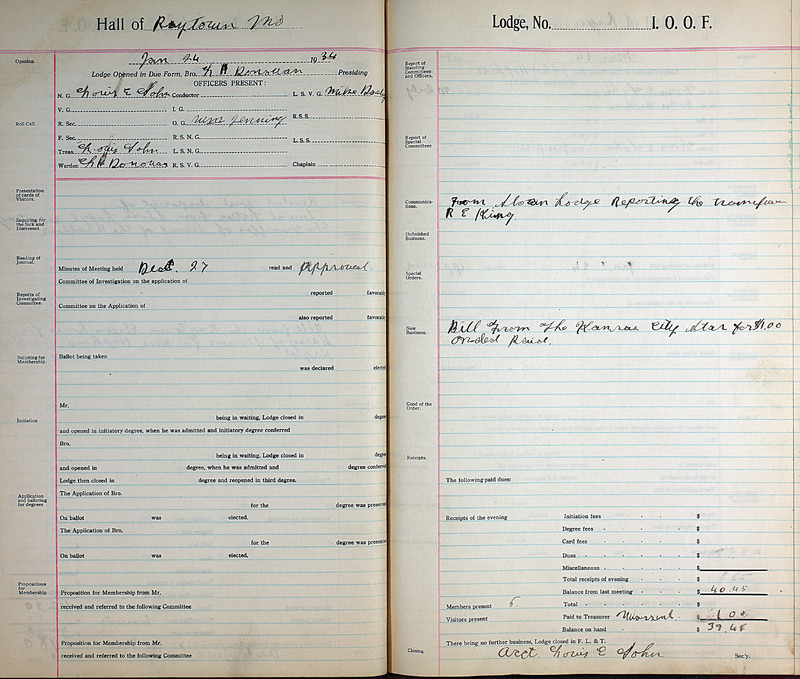 Hall of Raytown Mo
Jan 24 1934
Opening.
Lodge Opened in Due Form, Bro. C H Donovan Presiding
OFFICERS PRESENT:
N. G. Louis E John Conductor L. S. V. G. Mike
V. G. I. G.
Roll Call.
R. Sec. O. G. Jenning R. S. S.
F. Sec. R. S. N. G.
Treas. Louis John L. S. N. G. L. S. S.
Warden C H Donovan R. S. V. G. Chaplain
Presentation of cards of Visitors.
Inquiring for the Sick and Distressed.
Reading of Journal.
Minutes of Meeting held Dec. 27 read and Approved.
Committee of Investigation on the application of
Reports of Investigating Committee.
reported favorably
Committee on the Application of
also reported favorably
Balloting for Membership.
Ballot being taken
was declared elected
Mr.
Initiation
being in waiting, Lodge closed in degree
and opened in initiatory degree, when he was admitted and initiatory degree conferred
Bro.
being in waiting, Lodge closed in degree
and opened in degree, when he was admitted and degree conferred
Lodge then closed in degree and reopened in third degree.
Application and balloting for degrees
The Application of Bro.
for the degree was presented
On ballot was elected.
The Application of Bro.
for the degree was presented
On ballot was elected.
Propositions for Membership
Proposition for Membership from Mr.
received and referred to the following Committee
Proposition for Membership from Mr.
received and referred to the following Committee
Lodge, No. I. O. O. F.
Report of Standing Committees and Officers.
Report of Special Committees
Communications.
From Lodge Reporting the
R E King
Unfinished Business.
Special Orders.
New Business.
Bill From The Kansas City Star for $1.00
Paid.
Good of the Order.
Receipts.
The following paid dues:
Receipts of the evening Initiation fees $
Degree fees $
Card fees $
Dues $
Miscellaneous $
Total receipts of evening $
Balance from last meeting $ 40.45
Members present 5 Total $
Visitors present Paid to Treasurer $ 1 00
Balance on hand $ 39.45
There being no further business, Lodge closed in F. L. & T.
Closing Act. Louis E John Sec'y.